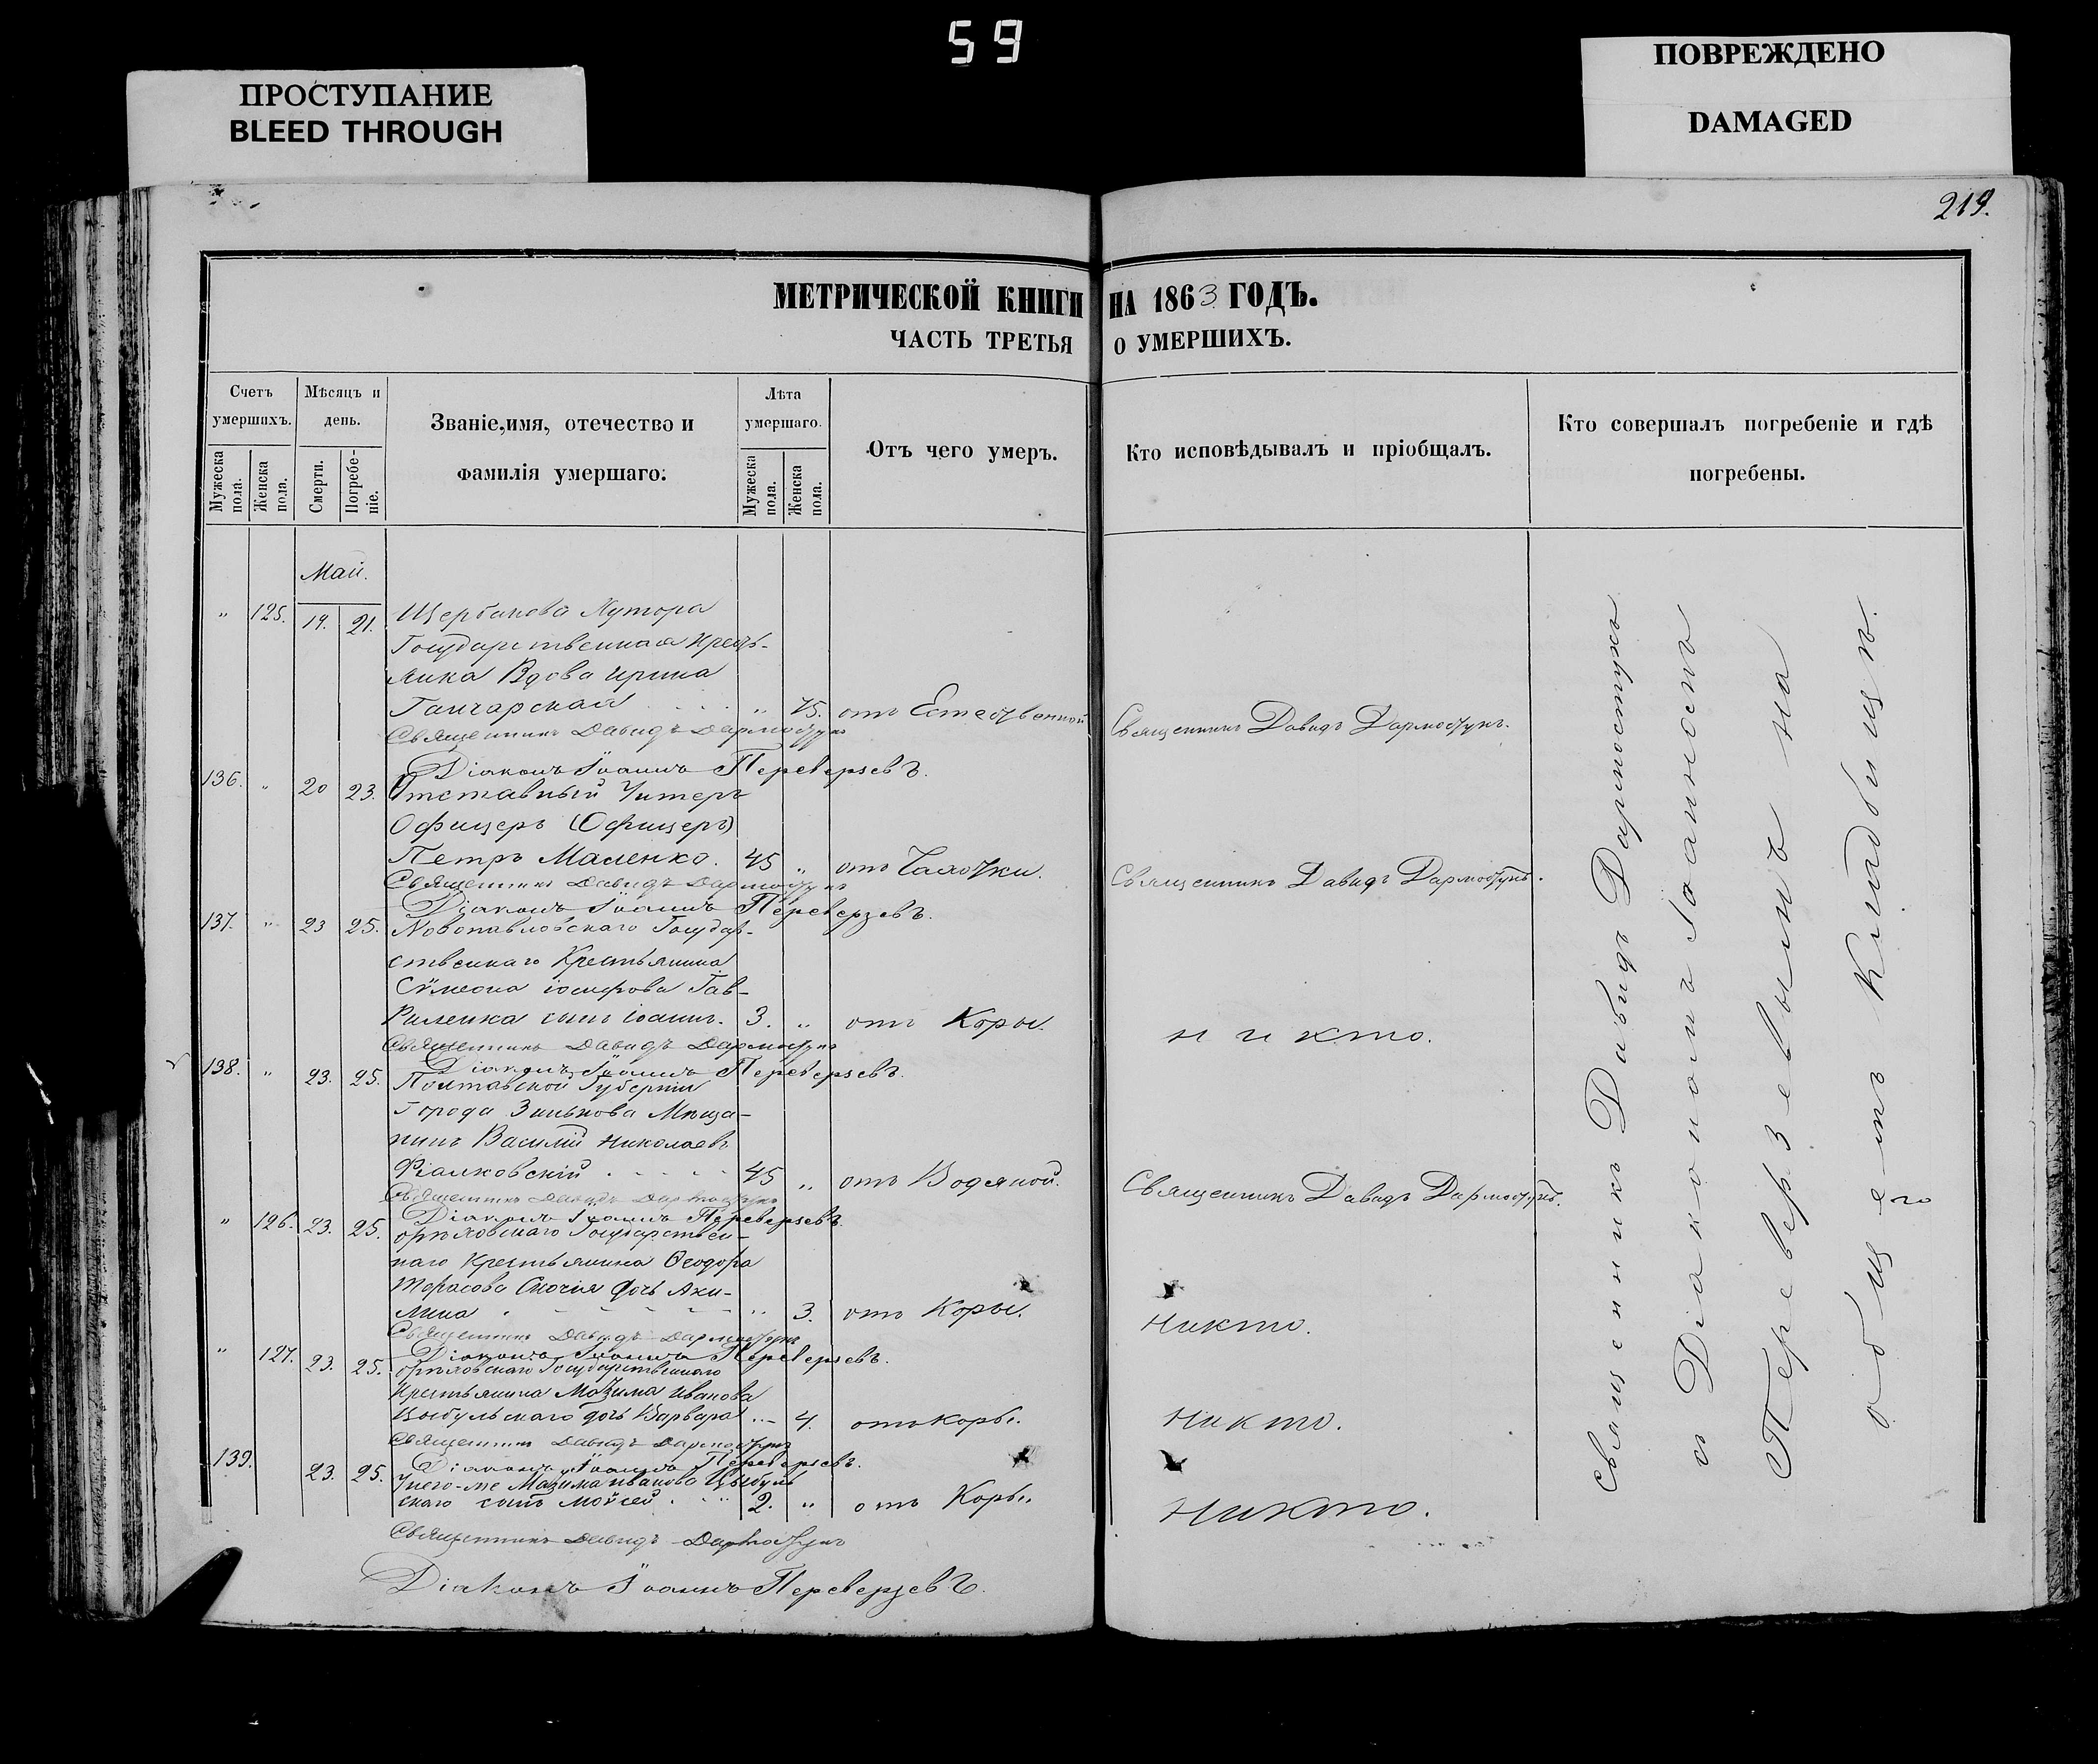 59
ПРОСТУПАНИЕ
BLEED THROUGH
ПОВРЕЖДЕНО
DAMAGED
219.
МЕТРИЧЕСКОЙ КНИГИ НА 1863 ГОДЪ.
ЧАСТЬ ТРЕТЬЯ О УМЕРШИХЪ.
Счетъ умершихъ.
Мужеска пола.
Женска пола.
Мѣсяцъ и день.
Смерти.
Погребеніе.
Званіе, имя, отечество и фамилія умершаго:
Лѣта умершаго.
Мужеска пола.
Женска пола.
Отъ чего умеръ.
Кто исповѣдывалъ и пріобщалъ.
Кто совершалъ погребеніе и гдѣ погребены.
Май.
" 125. 19. 21. Щербакова Хутора
Государственная Кресть-
янка Вдова Ирина
Ганчарская " 75. отъ Естественной Священникъ Давидъ Дармостукъ.
Священникъ Давидъ Дармостукъ
Діаконъ Іоаннъ Переверзевъ.
136. " 20 23. Отставный Унтеръ
Офицеръ (Офицеръ)
Петръ Маленко. 45 " отъ Чахотки. Священникъ Давидъ Дармостукъ.
Священникъ Давидъ Дармостукъ
Діаконъ Іоаннъ Переверзевъ.
137. " 23 25. Новопавловскаго Государ-
ственнаго Крестьянина
Сѵмеона Іосифова Гав-
риленка сынъ Іоаннъ. 3. " отъ Коры. никто.
Священникъ Давидъ Дармостукъ
Діаконъ Іоаннъ Переверзевъ.
138. " 23. 25. Полтавской Губерніи
Города Зинькова Мѣща-
нинъ Василій Николаевъ
Фіалковскій 45 " отъ Водяной. Священникъ Давидъ Дармостукъ.
Священникъ Давидъ Дармостукъ
Діаконъ Іоаннъ Переверзевъ.
" 126. 23. 25. Орѣховскаго Государствен-
наго Крестьянина Ѳеодора
дочь Аки-
лина " 3. отъ Коры. Никто.
Священникъ Давидъ Дармостукъ
Діаконъ Іоаннъ Переверзевъ.
" 127. 23. 25. Орѣховскаго Государственнаго
Крестьянина Мазима Иванова
Цыбульскаго дочь Варвара " 4. отъ Коры. Никто.
Священникъ Давидъ Дармостукъ
Діаконъ Іоаннъ Переверзевъ.
139. 23. 25. У него-же Мазима Иванова Цыбуль
скаго сынъ Мойсей 2. " отъ Коры. Никто.
Священникъ Давидъ Дармостукъ
Діаконъ Іоаннъ Переверзевъ.
Священникъ Давидъ Дармостукъ
съ Діакономъ Іоанномъ
Переверзевымъ на
общемъ Кладбищѣ.